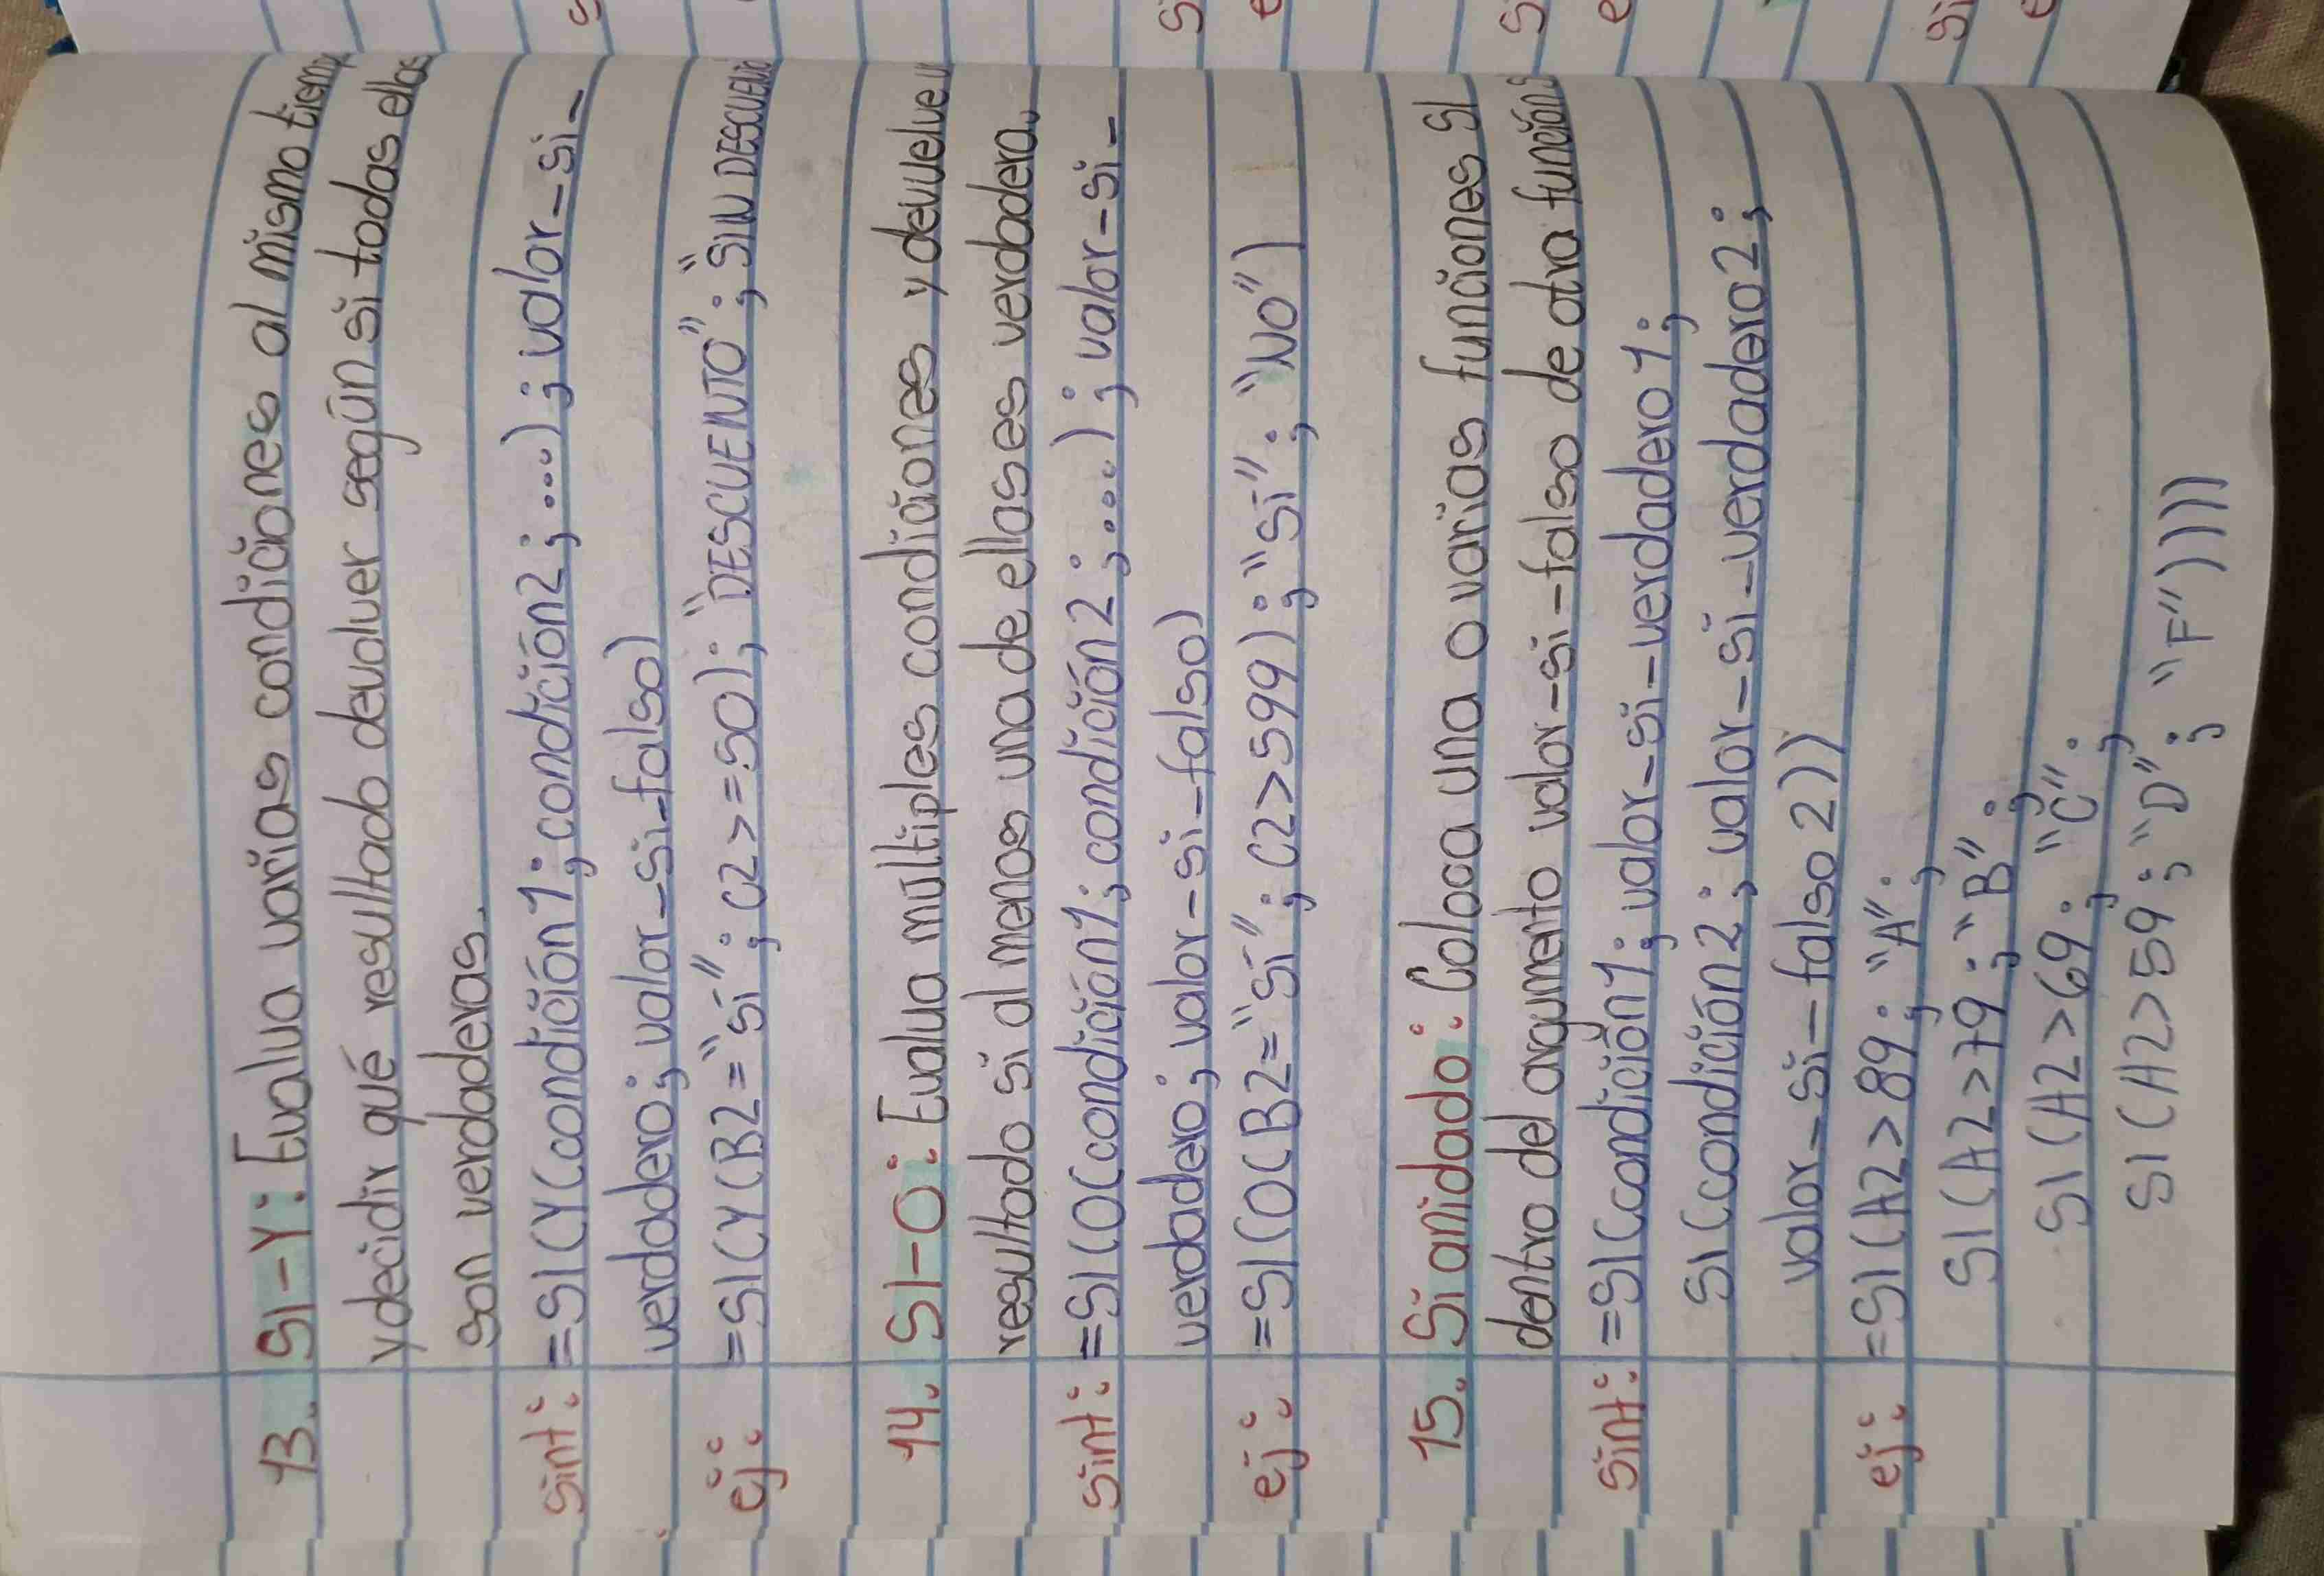 13. SI-Y: Evalua varias condiciones al mismo tiem
y decidir qué resultado devolver según si todas ellas
son verdaderas.
sint: =SI(Y(condición1; condición2; ...); valor-si-
verdadero; valor-si-falso)
ej: =SI(Y(B2="sí"; C2>=50); "DESCUENTO"; "SIN DESCUENTO
14. SI-O: Evalua multiples condiciones y devuelve u
resultado si al menos una de ellas es verdadera.
sint: =SI(O(condición1; condición2; ...); valor-si-
verdadero; valor-si-falso)
ej: =SI(O(B2="sí"; C2>599); "sí"; "NO")
15. Si anidado: Coloca una o varias funciones SI
dentro del argumento valor-si-falso de otra función S
sint: =SI(condición1; valor-si-verdadero1;
SI(condición2; valor-si-verdadero2;
valor-si-falso2))
ej: =SI(A2>89; "A";
SI(A2>79; "B";
SI(A2>69; "C";
SI(A2>59; "D"; "F"))))